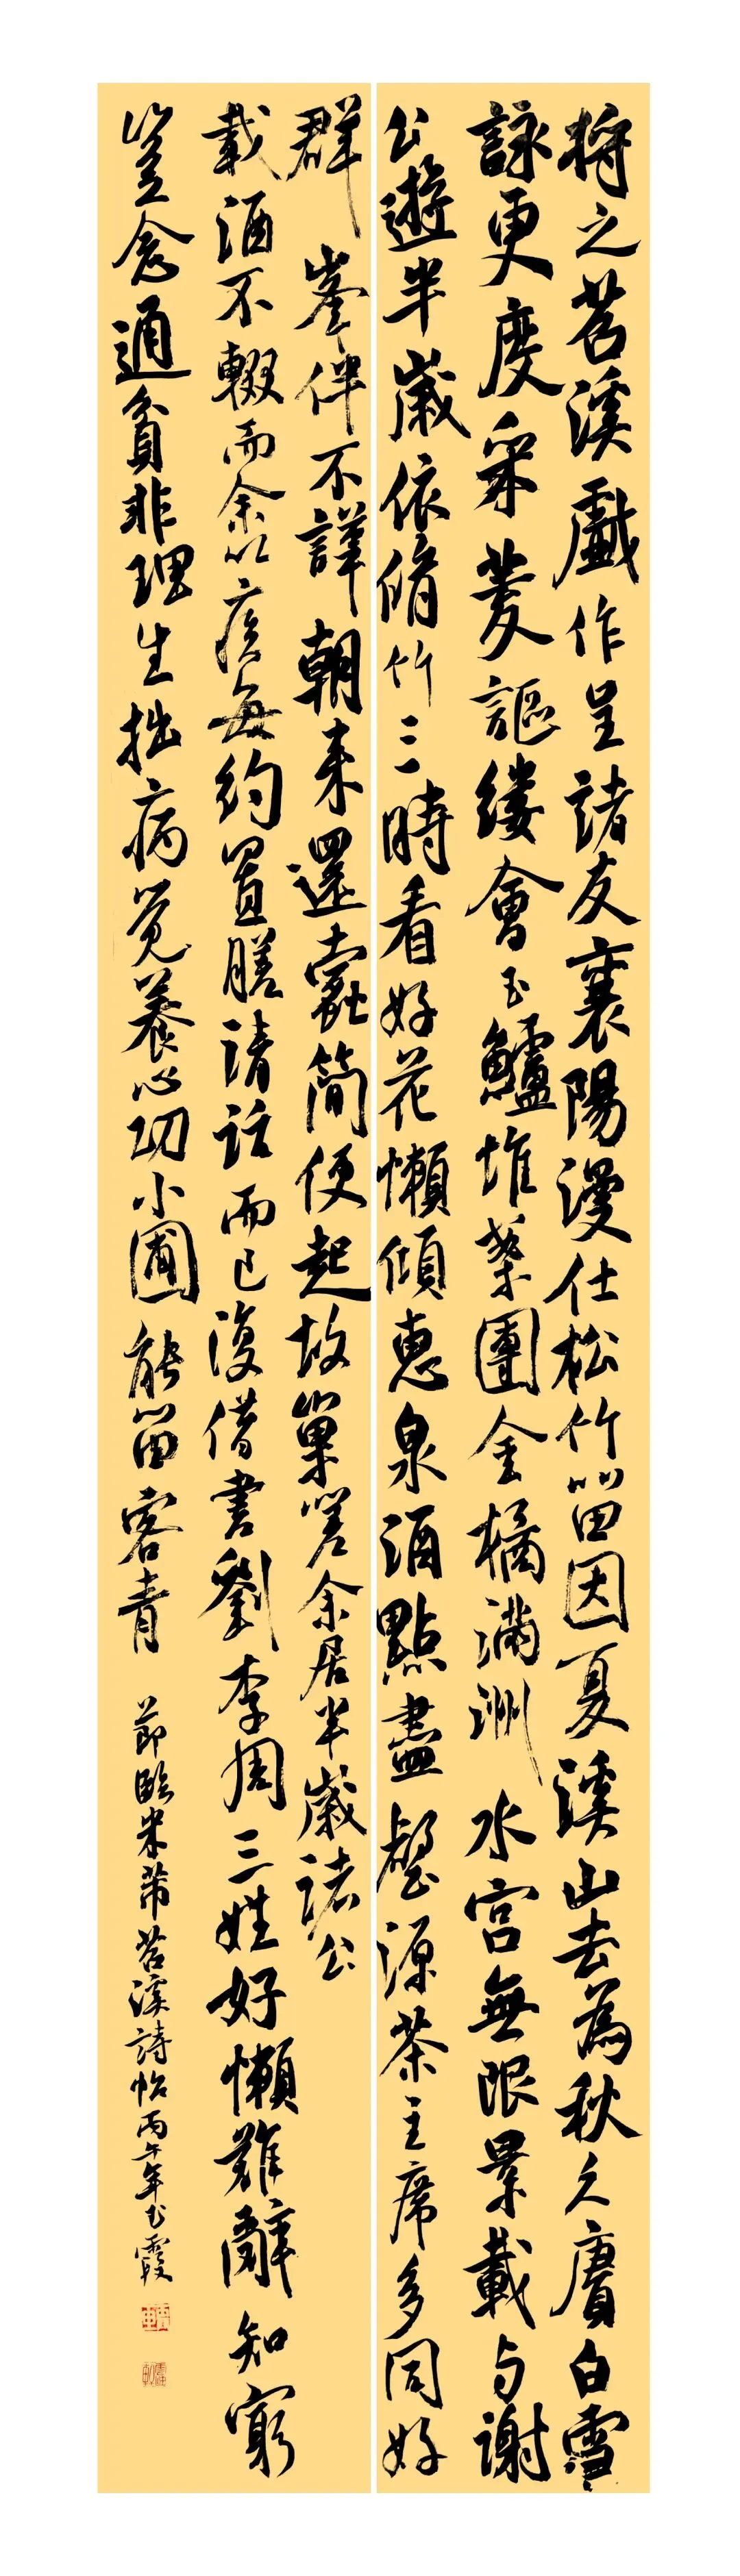 将之苕溪戲作呈諸友襄陽漫仕松竹留因夏溪山去為秋久賡白雪
詠更度采菱謳縷會玉鱸堆案團金橘滿洲水宮無限景載与謝
公遊半歲依脩竹三時看好花懶傾惠泉酒點盡壑源茶主席多同好
群峯伴不譁朝来還蠹簡便起故巢嗟余居半歲諸公
載酒不輟而余以疾每約置膳清話而已復借書劉李周三姓好懶難辭知窮
豈念通貧非理生拙病覺養心功小圃能留客青 節臨米芾苕溪詩帖丙午年霞